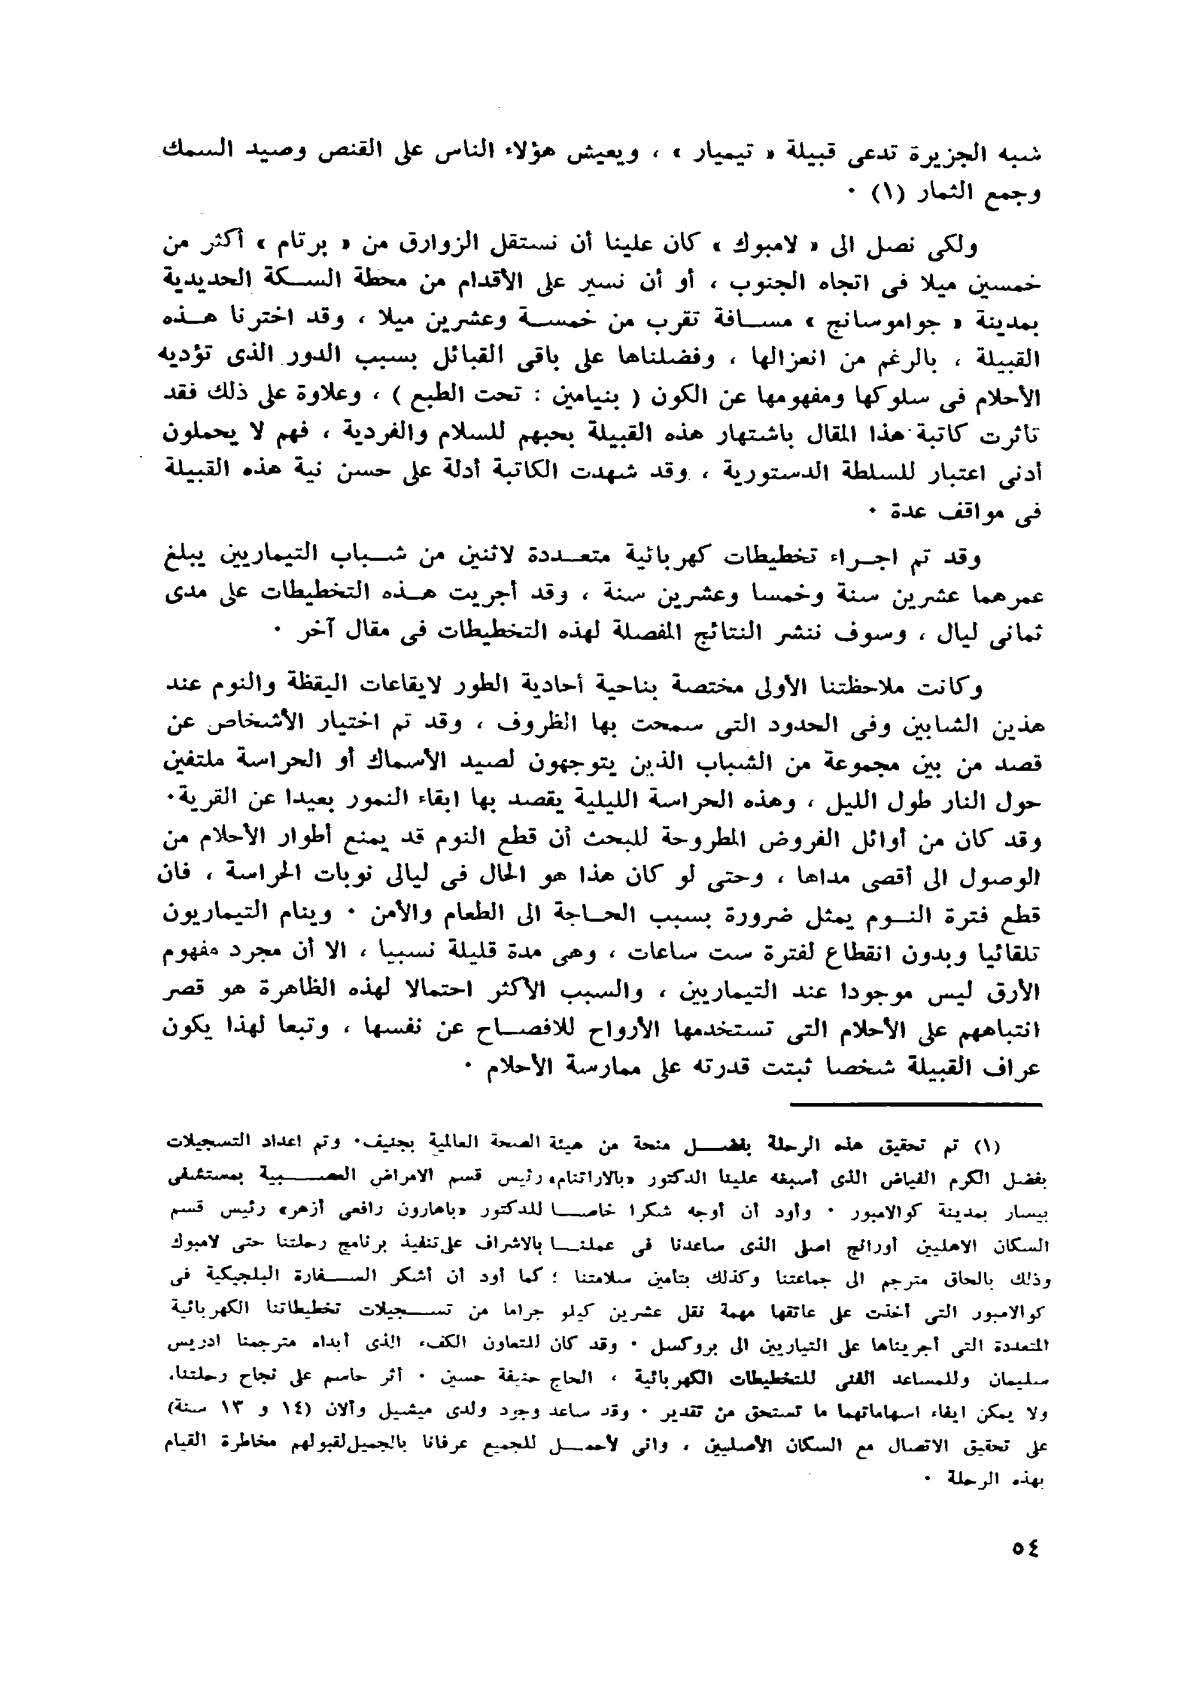 شبه الجزيرة تدعى قبيلة « تيميار » ، ويعيش هؤلاء الناس على القنص وصيد السمك
وجمع الثمار (١) ٠
ولكى نصل الى « لامبوك » كان علينا أن نستقل الزوارق من « برتام » أكثر من
خمسين ميلا فى اتجاه الجنوب ، أو أن نسير على الأقدام من محطة السكة الحديدية
بمدينة « جواموسانج » مسافة تقرب من خمسة وعشرين ميلا ، وقد اخترنا هذه
القبيلة ، بالرغم من انعزالها ، وفضلناها على باقى القبائل بسبب الدور الذى تؤديه
الأحلام فى سلوكها ومفهومها عن الكون ( بنيامين : تحت الطبع ) ، وعلاوة على ذلك فقد
تأثرت كاتبة هذا المقال باشتهار هذه القبيلة بحبهم للسلام والفردية ، فهم لا يحملون
أدنى اعتبار للسلطة الدستورية ، وقد شهدت الكاتبة أدلة على حسن نية هذه القبيلة
فى مواقف عدة ٠
وقد تم اجراء تخطيطات كهربائية متعددة لاثنين من شباب التيماريين يبلغ
عمرهما عشرين سنة وخمسا وعشرين سنة ، وقد أجريت هذه التخطيطات على مدى
ثمانى ليال ، وسوف ننشر النتائج المفصلة لهذه التخطيطات فى مقال آخر ٠
وكانت ملاحظتنا الأولى مختصة بناحية أحادية الطور لايقاعات اليقظة والنوم عند
هذين الشابين وفى الحدود التى سمحت بها الظروف ، وقد تم اختيار الأشخاص عن
قصد من بين مجموعة من الشباب الذين يتوجهون لصيد الأسماك أو الحراسة ملتفين
حول النار طول الليل ، وهذه الحراسة الليلية يقصد بها ابقاء النمور بعيدا عن القرية٠
وقد كان من أوائل الفروض المطروحة للبحث أن قطع النوم قد يمنع أطوار الأحلام من
الوصول الى أقصى مداها ، وحتى لو كان هذا هو الحال فى ليالى نوبات الحراسة ، فان
قطع فترة النوم يمثل ضرورة بسبب الحاجة الى الطعام والأمن ٠ وينام التيماريون
تلقائيا وبدون انقطاع لفترة ست ساعات ، وهى مدة قليلة نسبيا ، الا أن مجرد مفهوم
الأرق ليس موجودا عند التيماريين ، والسبب الأكثر احتمالا لهذه الظاهرة هو قصر
انتباههم على الأحلام التى تستخدمها الأرواح للافصاح عن نفسها ، وتبعا لهذا يكون
عراف القبيلة شخصا ثبتت قدرته على ممارسة الأحلام ٠
(١) تم تحقيق هذه الرحلة بفضل منحة من هيئة الصحة العالمية بجنيف٠ وتم اعداد التسجيلات
بفضل الكرم الفياض الذى أسبغه علينا الدكتور «بالاراتنام» رئيس قسم الامراض العصبية بمستشفى
بيسار بمدينة كوالامبور ٠ وأود أن أوجه شكرا خاصا للدكتور «باهارون رافعى أزهر» رئيس قسم
السكان الاهليين أورانج اصلى الذى ساعدنا فى عملنا بالاشراف على تنفيذ برنامج رحلتنا حتى لامبوك
وذلك بالحاق مترجم الى جماعتنا وكذلك بتأمين سلامتنا ؛ كما أود أن أشكر السفارة البلجيكية فى
كوالامبور التى أخذت على عاتقها مهمة نقل عشرين كيلو جراما من تسجيلات تخطيطاتنا الكهربائية
المتعددة التى أجريناها على التياريين الى بروكسل ٠ وقد كان للتعاون الكفء الذى أبداه مترجمنا ادريس
سليمان وللمساعد الفنى للتخطيطات الكهربائية ، الحاج حنيفة حسين ٠ أثر حاسم على نجاح رحلتنا،
ولا يمكن ايفاء اسهاماتهما ما تستحق من تقدير ٠ وقد ساعد وجود ولدى ميشيل وآلان (١٤ و ١٣ سنة)
على تحقيق الاتصال مع السكان الأصليين ، وانى لأحمل للجميع عرفانا بالجميل لقبولهم مخاطرة القيام
بهذه الرحلة ٠
٥٤